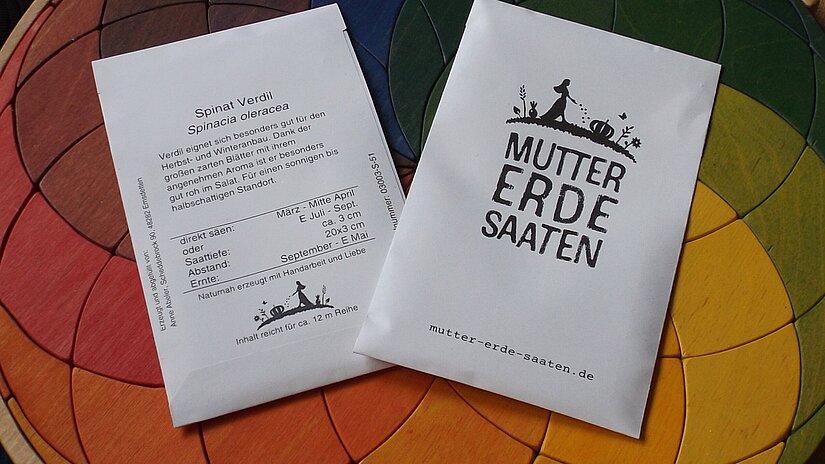 Spinat Verdil
Spinacia oleracea
Verdil eignet sich besonders gut für den
Herbst- und Winteranbau. Dank der
großen zarten Blätter mit ihrem
angenehmen Aroma ist er besonders
gut roh im Salat. Für einen sonnigen bis
halbschattigen Standort.
direkt säen: März - Mitte April
oder E Juli - Sept.
Saattiefe: ca. 3 cm
Abstand: 20x3 cm
Ernte: September - E Mai
Naturnah erzeugt mit Handarbeit und Liebe
Inhalt reicht für ca. 12 m Reihe
Erzeugt und abgefüllt von:
Anne Abeler, Scheddebrock 90, 48282 Emsdetten
03003-S-51
MUTTER
ERDE
SAATEN
mutter-erde-saaten.de